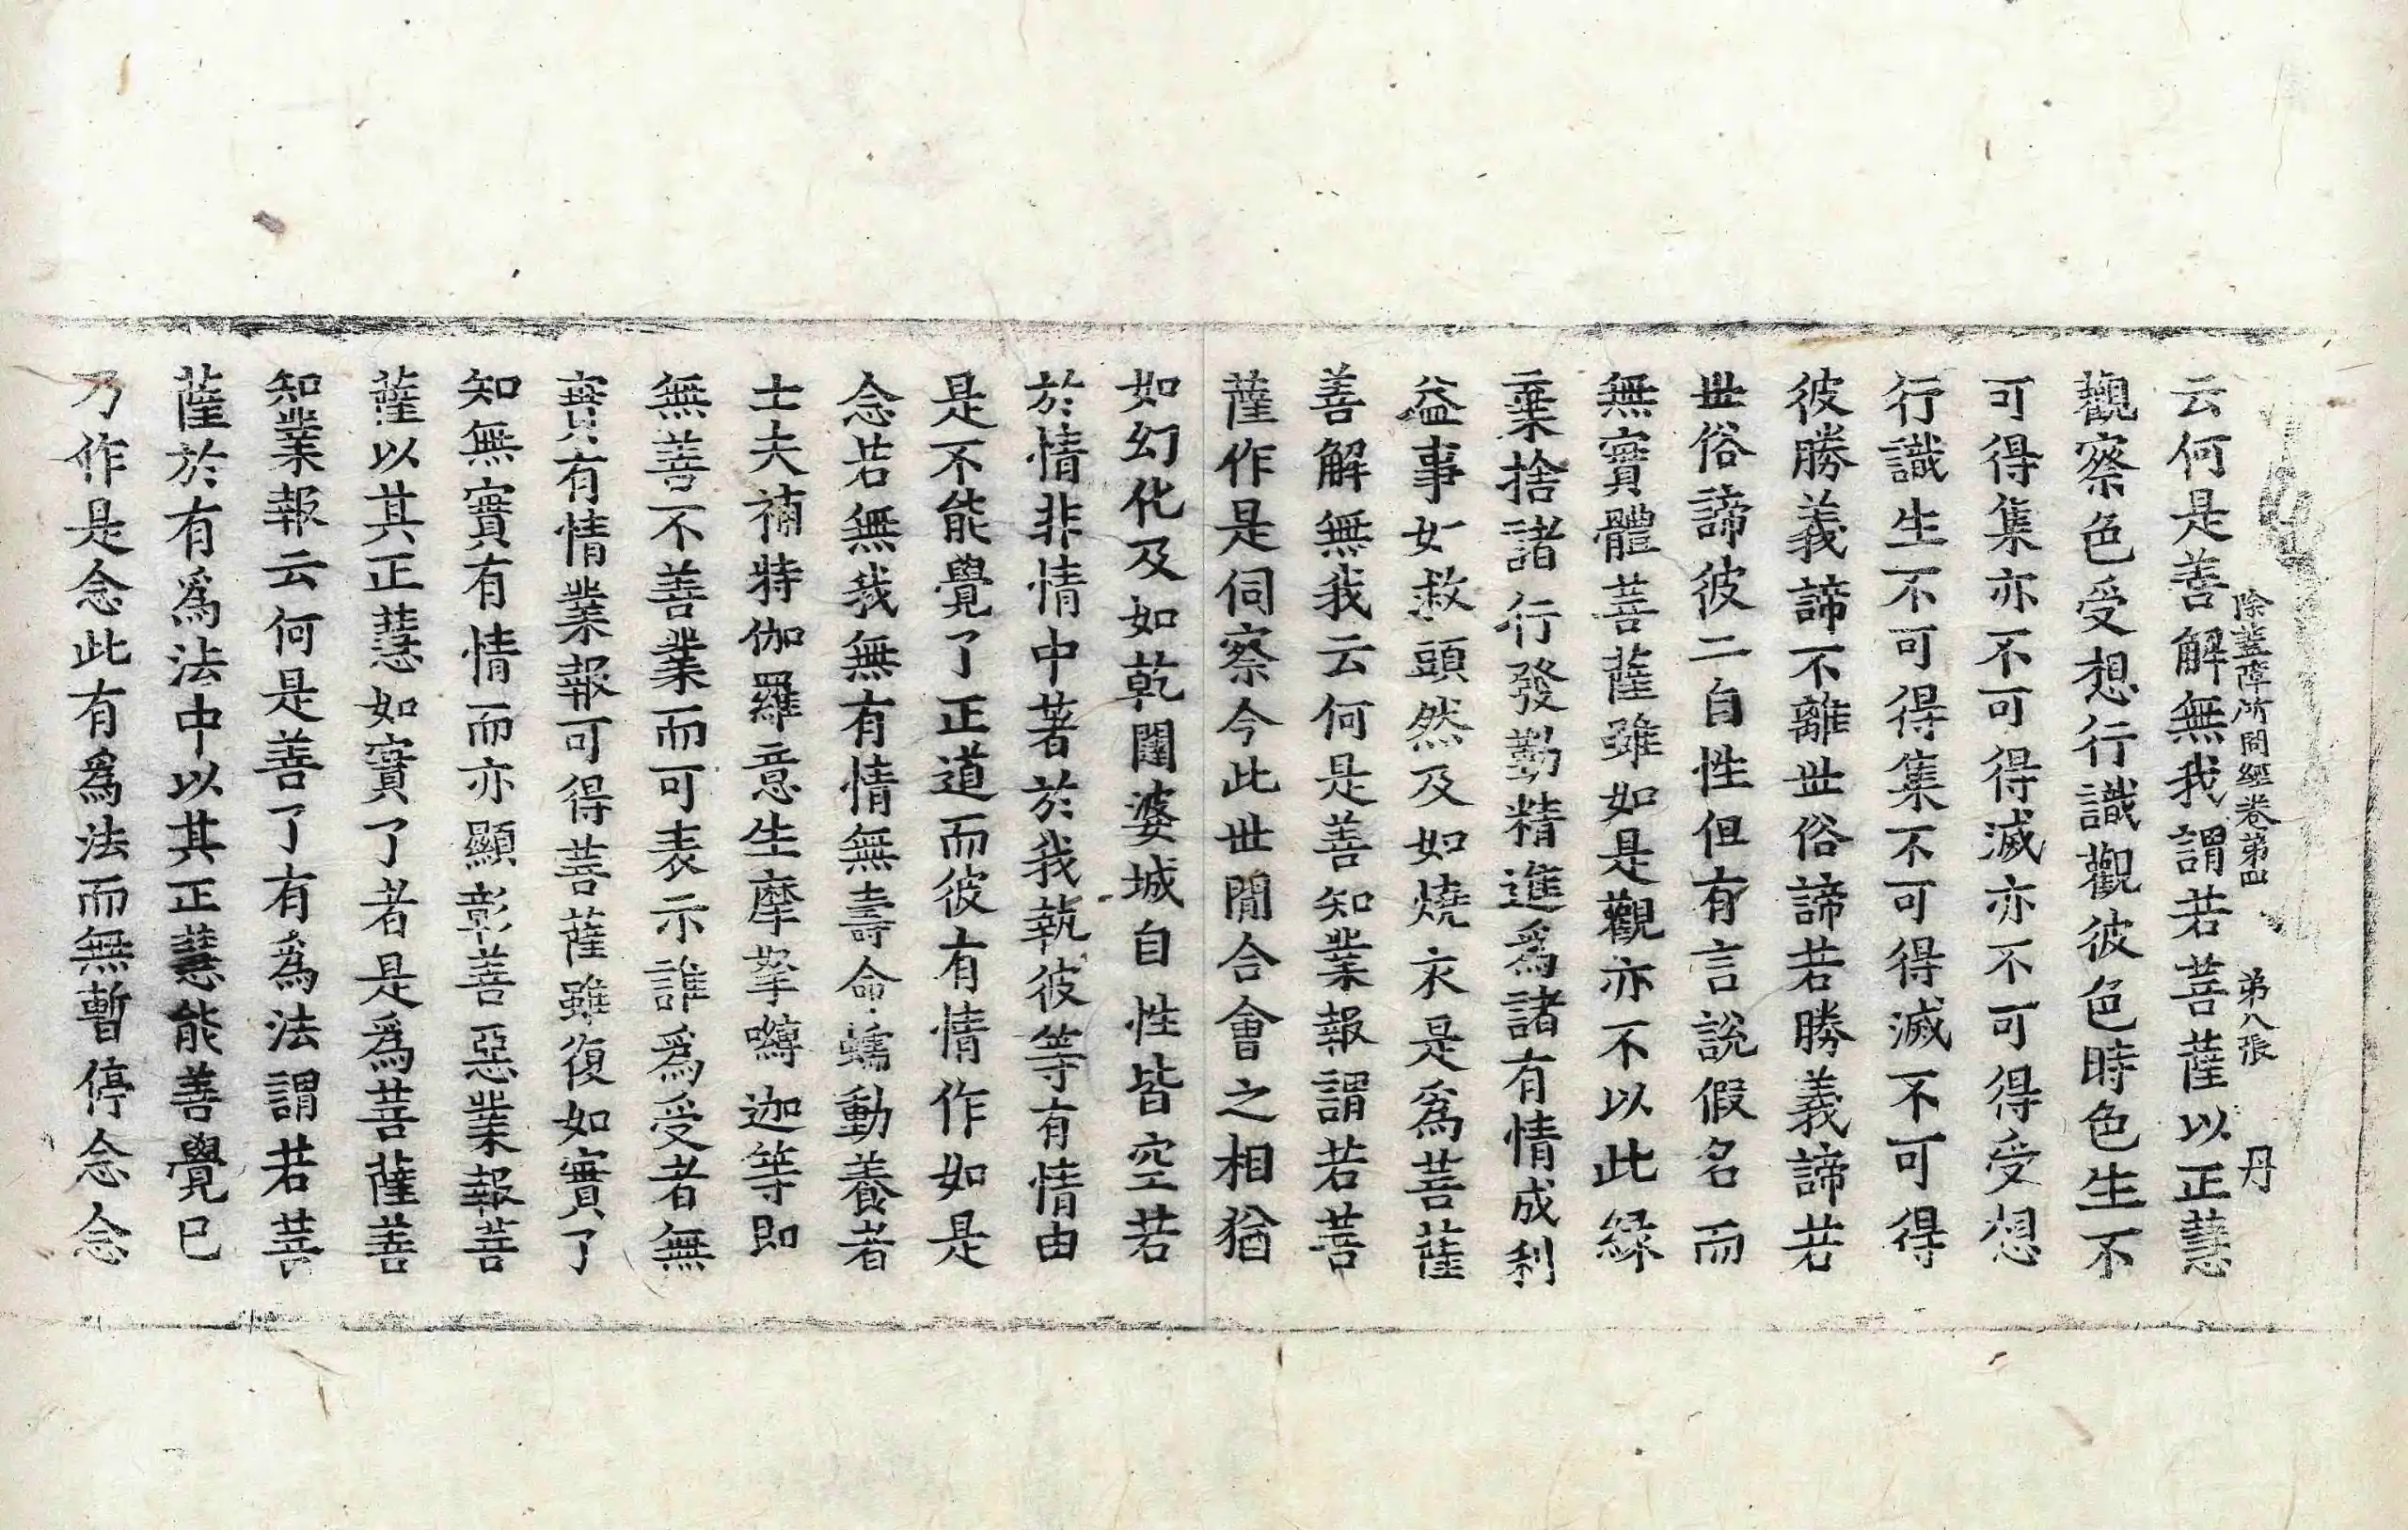 除蓋障所問經卷第四 第八張 丹
云何是善解無我謂若菩薩以正慧
觀察色受想行識觀彼色時色生不
可得集亦不可得滅亦不可得受想
行識生不可得集不可得滅不可得
彼勝義諦不離世俗諦若勝義諦若
世俗諦彼二自性但有言說假名而
無實體菩薩雖如是觀亦不以此緣
棄捨諸行發勤精進爲諸有情成利
益事如救頭然及如燒衣是爲菩薩
善解無我云何是善知業報謂若菩
薩作是伺察今此世閒合會之相猶
如幻化及如乾闥婆城自性皆空若
於情非情中著於我執彼等有情由
是不能覺了正道而彼有情作如是
念若無我無有情無壽命蠕動養者
士夫補特伽羅意生摩拏嚩迦等即
無善不善業而可表示誰爲受者無
實有情業報可得菩薩雖復如實了
知無實有情而亦顯彰善惡業報菩
薩以其正慧如實了者是爲菩薩善
知業報云何是善了有爲法謂若菩
薩於有爲法中以其正慧能善覺已
乃作是念此有爲法而無暫停念念